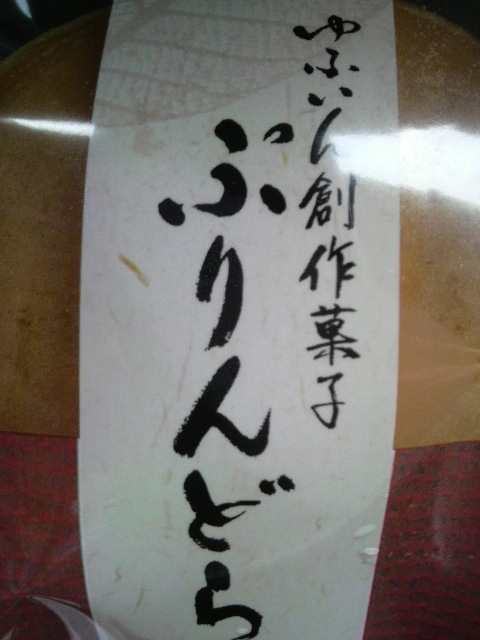 ゆふいん創作菓子
ぷりんどら